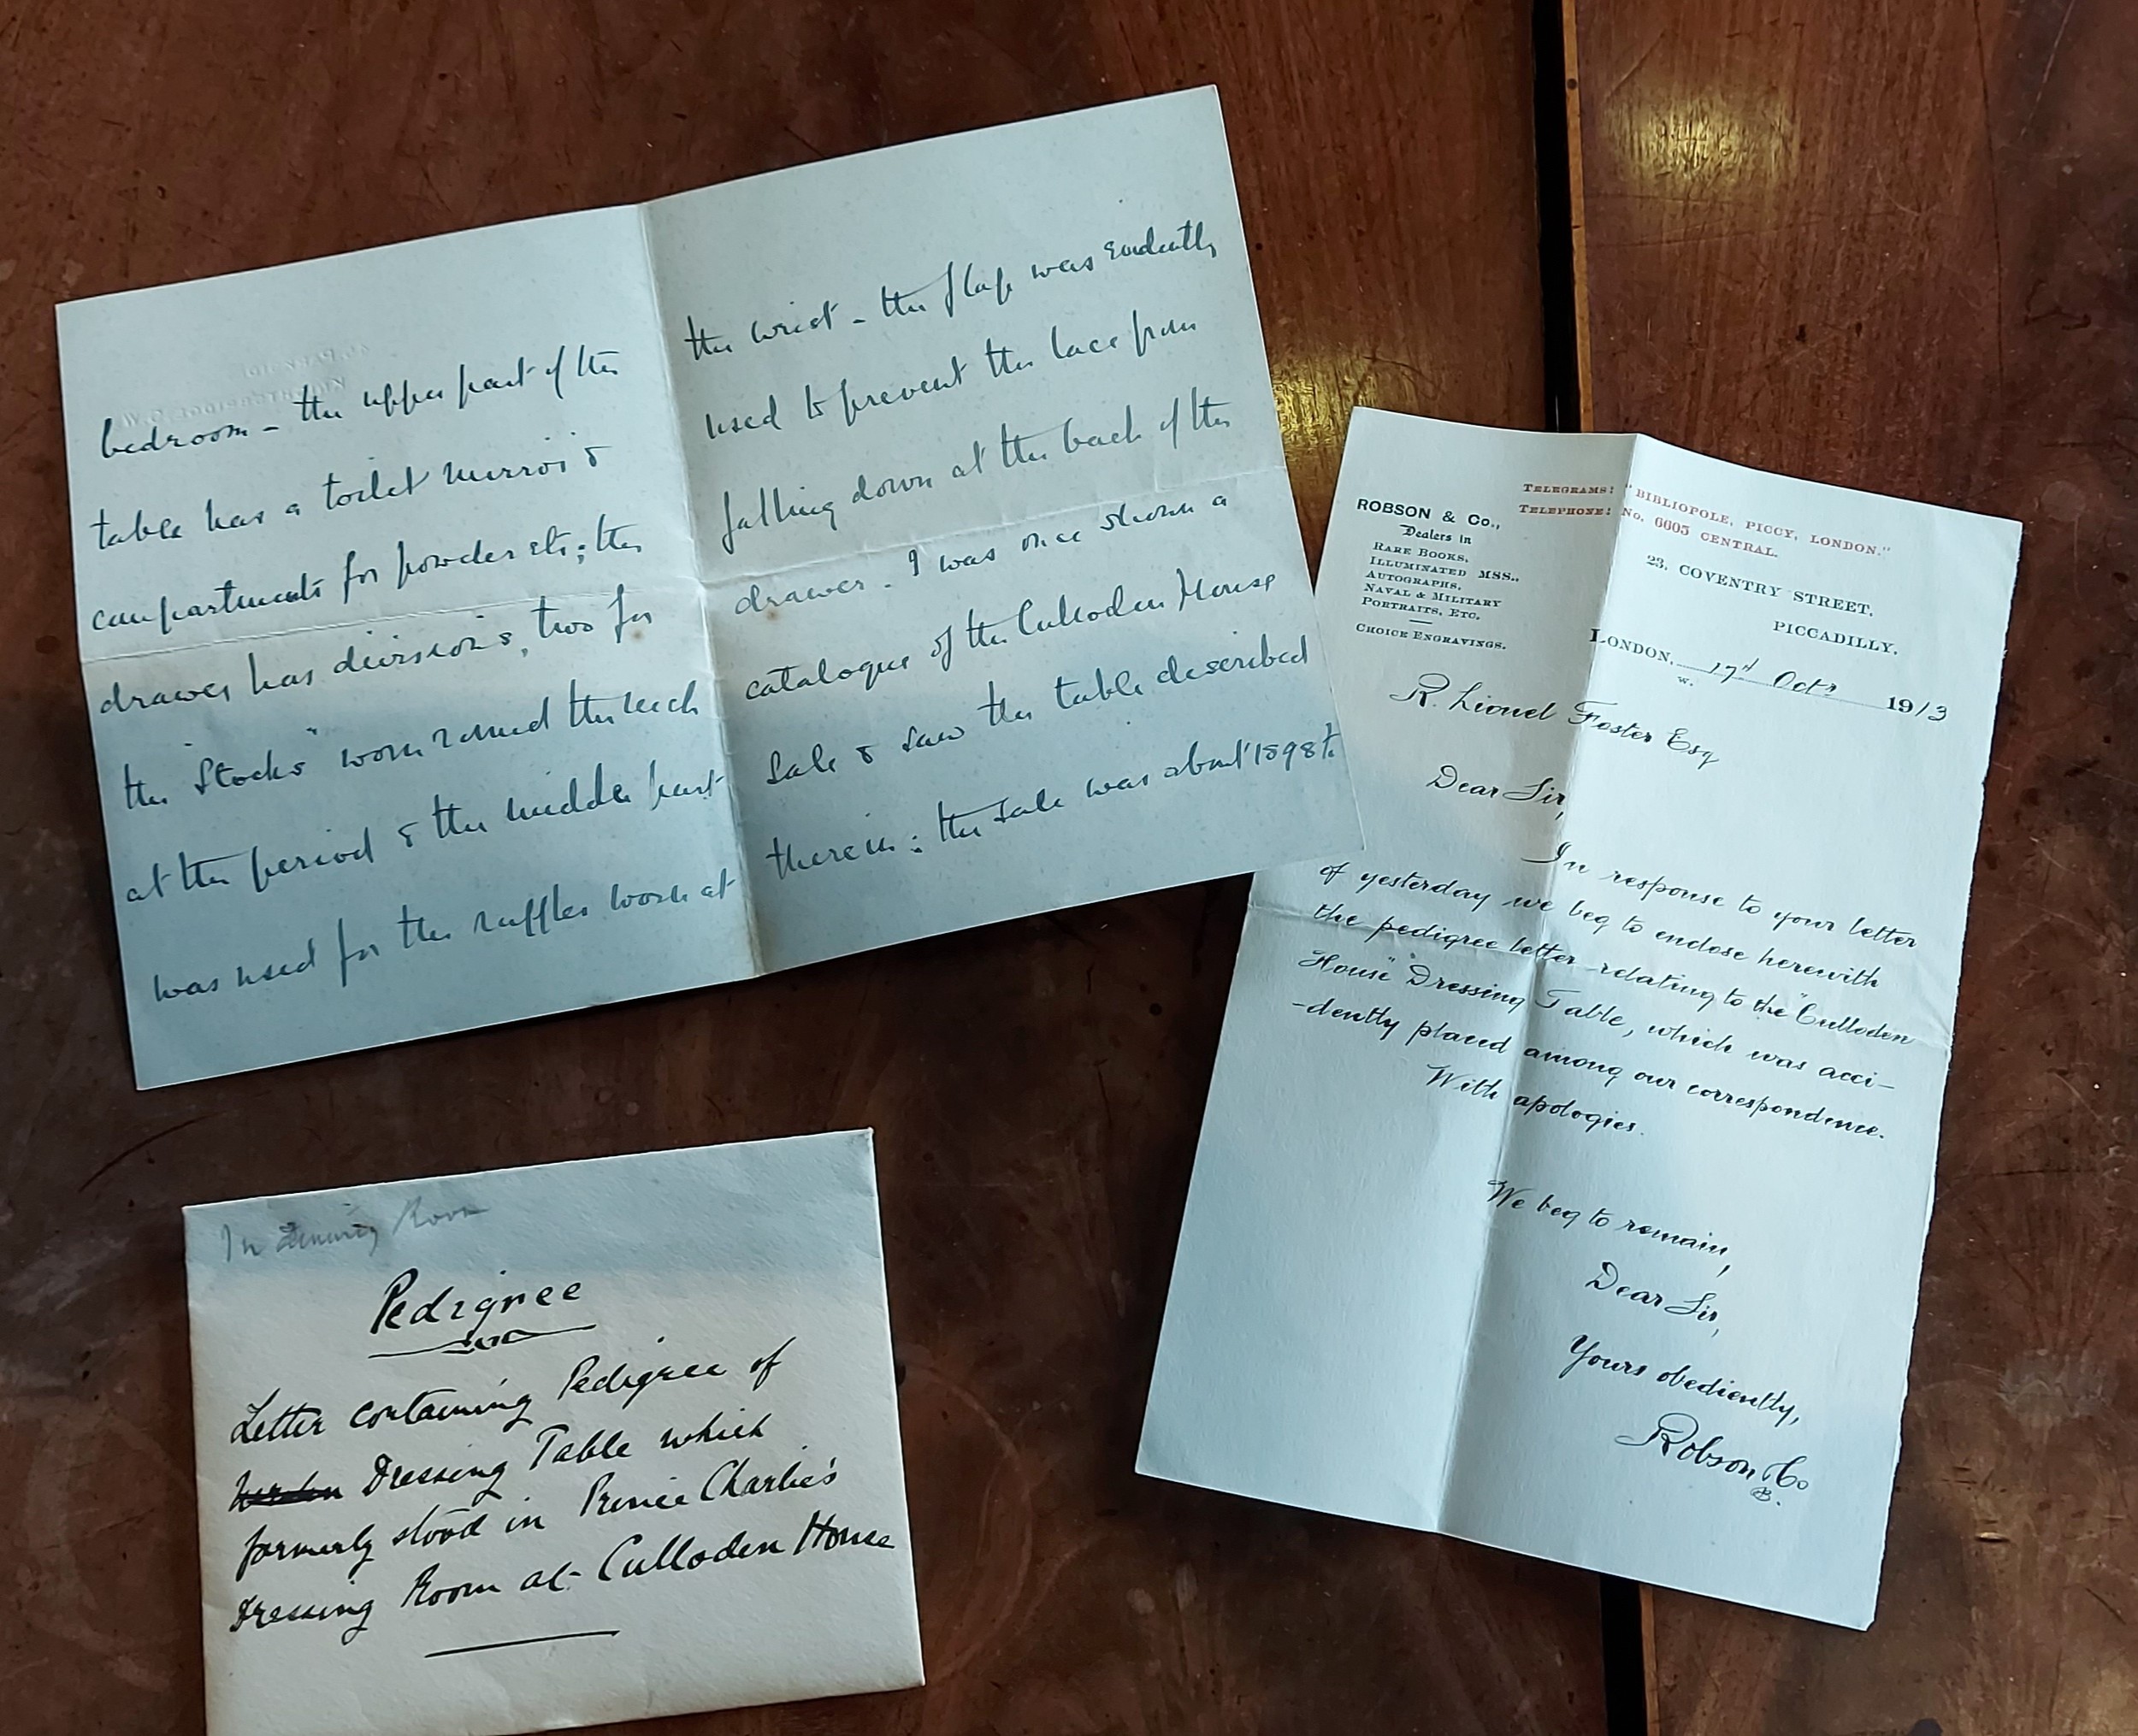 bedroom – the upper part of the
table has a toilet mirror &
compartments for powder etc; the
drawer has divisions, two for
the "Stocks" worn round the neck
at the period & the middle part
was used for the ruffles worn at
the wrist – the flap was evidently
used to prevent the lace from
falling down at the back of the
drawer – I was once shown a
catalogue of the Culloden House
Sale & saw the table described
therein: the sale was about 1898
ROBSON & Co.,
Dealers in
RARE BOOKS,
ILLUMINATED MSS.,
AUTOGRAPHS,
NAVAL & MILITARY
PORTRAITS, ETC.
CHOICE ENGRAVINGS.
TELEGRAMS: "BIBLIOPOLE, PICCY, LONDON."
TELEPHONE: No. 6605 CENTRAL.
23, COVENTRY STREET,
PICCADILLY.
LONDON, W. 17th Octr 1913
R. Lionel Foster Esq
Dear Sir,
In response to your letter
of yesterday we beg to enclose herewith
the pedigree letter relating to the "Culloden
House" Dressing Table, which was acci-
-dently placed among our correspondence.
With apologies.
We beg to remain,
Dear Sir,
Yours obediently,
Robson & Co
In Room
Pedigree
Letter containing Pedigree of
Dressing Table which
formerly stood in Prince Charlie's
Dressing Room at Culloden House